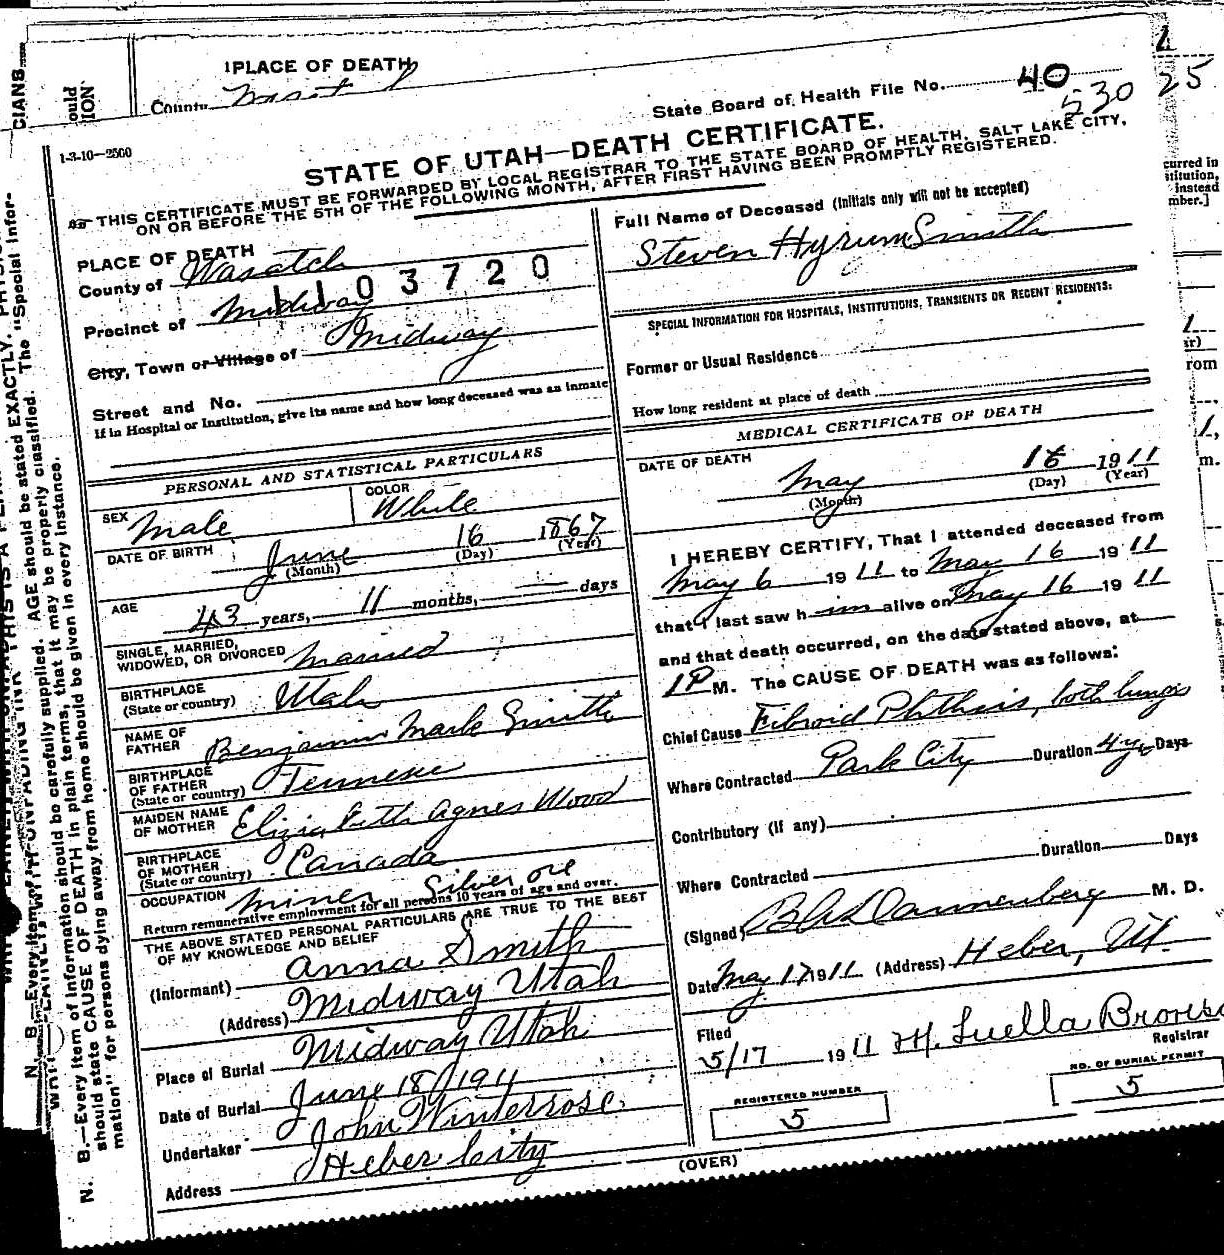 1PLACE OF DEATH
County
State Board of Health File No. 40
530 25
1-3-10—2500
STATE OF UTAH—DEATH CERTIFICATE.
THIS CERTIFICATE MUST BE FORWARDED BY LOCAL REGISTRAR TO THE STATE BOARD OF HEALTH, SALT LAKE CITY,
ON OR BEFORE THE 5TH OF THE FOLLOWING MONTH, AFTER FIRST HAVING BEEN PROMPTLY REGISTERED.
PLACE OF DEATH
County of Wasatch
1103720
Precinct of Midway
City, Town or Village of Midway
Street and No.
If in Hospital or Institution, give its name and how long deceased was an inmate
PERSONAL AND STATISTICAL PARTICULARS
SEX Male
COLOR White
DATE OF BIRTH June 16 1867
(Month) (Day) (Year)
AGE 43 years, 11 months, — days
SINGLE, MARRIED,
WIDOWED, OR DIVORCED Married
BIRTHPLACE
(State or country) Utah
NAME OF
FATHER Benjamin Mark Smith
BIRTHPLACE
OF FATHER
(State or country) Tennesee
MAIDEN NAME
OF MOTHER Elizabeth Agnes Wood
BIRTHPLACE
OF MOTHER
(State or country) Canada
OCCUPATION Miner Silver ore
Return remunerative employment for all persons 10 years of age and over.
THE ABOVE STATED PERSONAL PARTICULARS ARE TRUE TO THE BEST
OF MY KNOWLEDGE AND BELIEF
(Informant) Anna Smith
(Address) Midway Utah
Place of Burial Midway Utah
Date of Burial June 18/1911
Undertaker John Winterrose
Address Heber City
Full Name of Deceased (Initials only will not be accepted)
Steven Hyrum Smith
SPECIAL INFORMATION FOR HOSPITALS, INSTITUTIONS, TRANSIENTS OR RECENT RESIDENTS:
Former or Usual Residence
How long resident at place of death
MEDICAL CERTIFICATE OF DEATH
DATE OF DEATH
May 16 1911
(Month) (Day) (Year)
I HEREBY CERTIFY, That I attended deceased from
May 6 1911 to May 16 1911
that I last saw him alive on May 16 1911
and that death occurred, on the date stated above, at
1P M. The CAUSE OF DEATH was as follows:
Chief Cause Fibroid Phthisis, both lungs
Where Contracted Park City Duration 4 yrs Days
Contributory (if any)
Duration Days
Where Contracted
(Signed) Dannenberg M. D.
Date May 17 1911 (Address) Heber, Ut.
Filed
5/17 1911 M. Luella
Registrar
REGISTERED NUMBER
5
NO. OF BURIAL PERMIT
5
(OVER)
N. B.—Every item of information should be carefully supplied. AGE should be stated EXACTLY.
should state CAUSE OF DEATH in plain terms, that it may be properly classified. The "Special Infor-
mation" for persons dying away from home should be given in every instance.